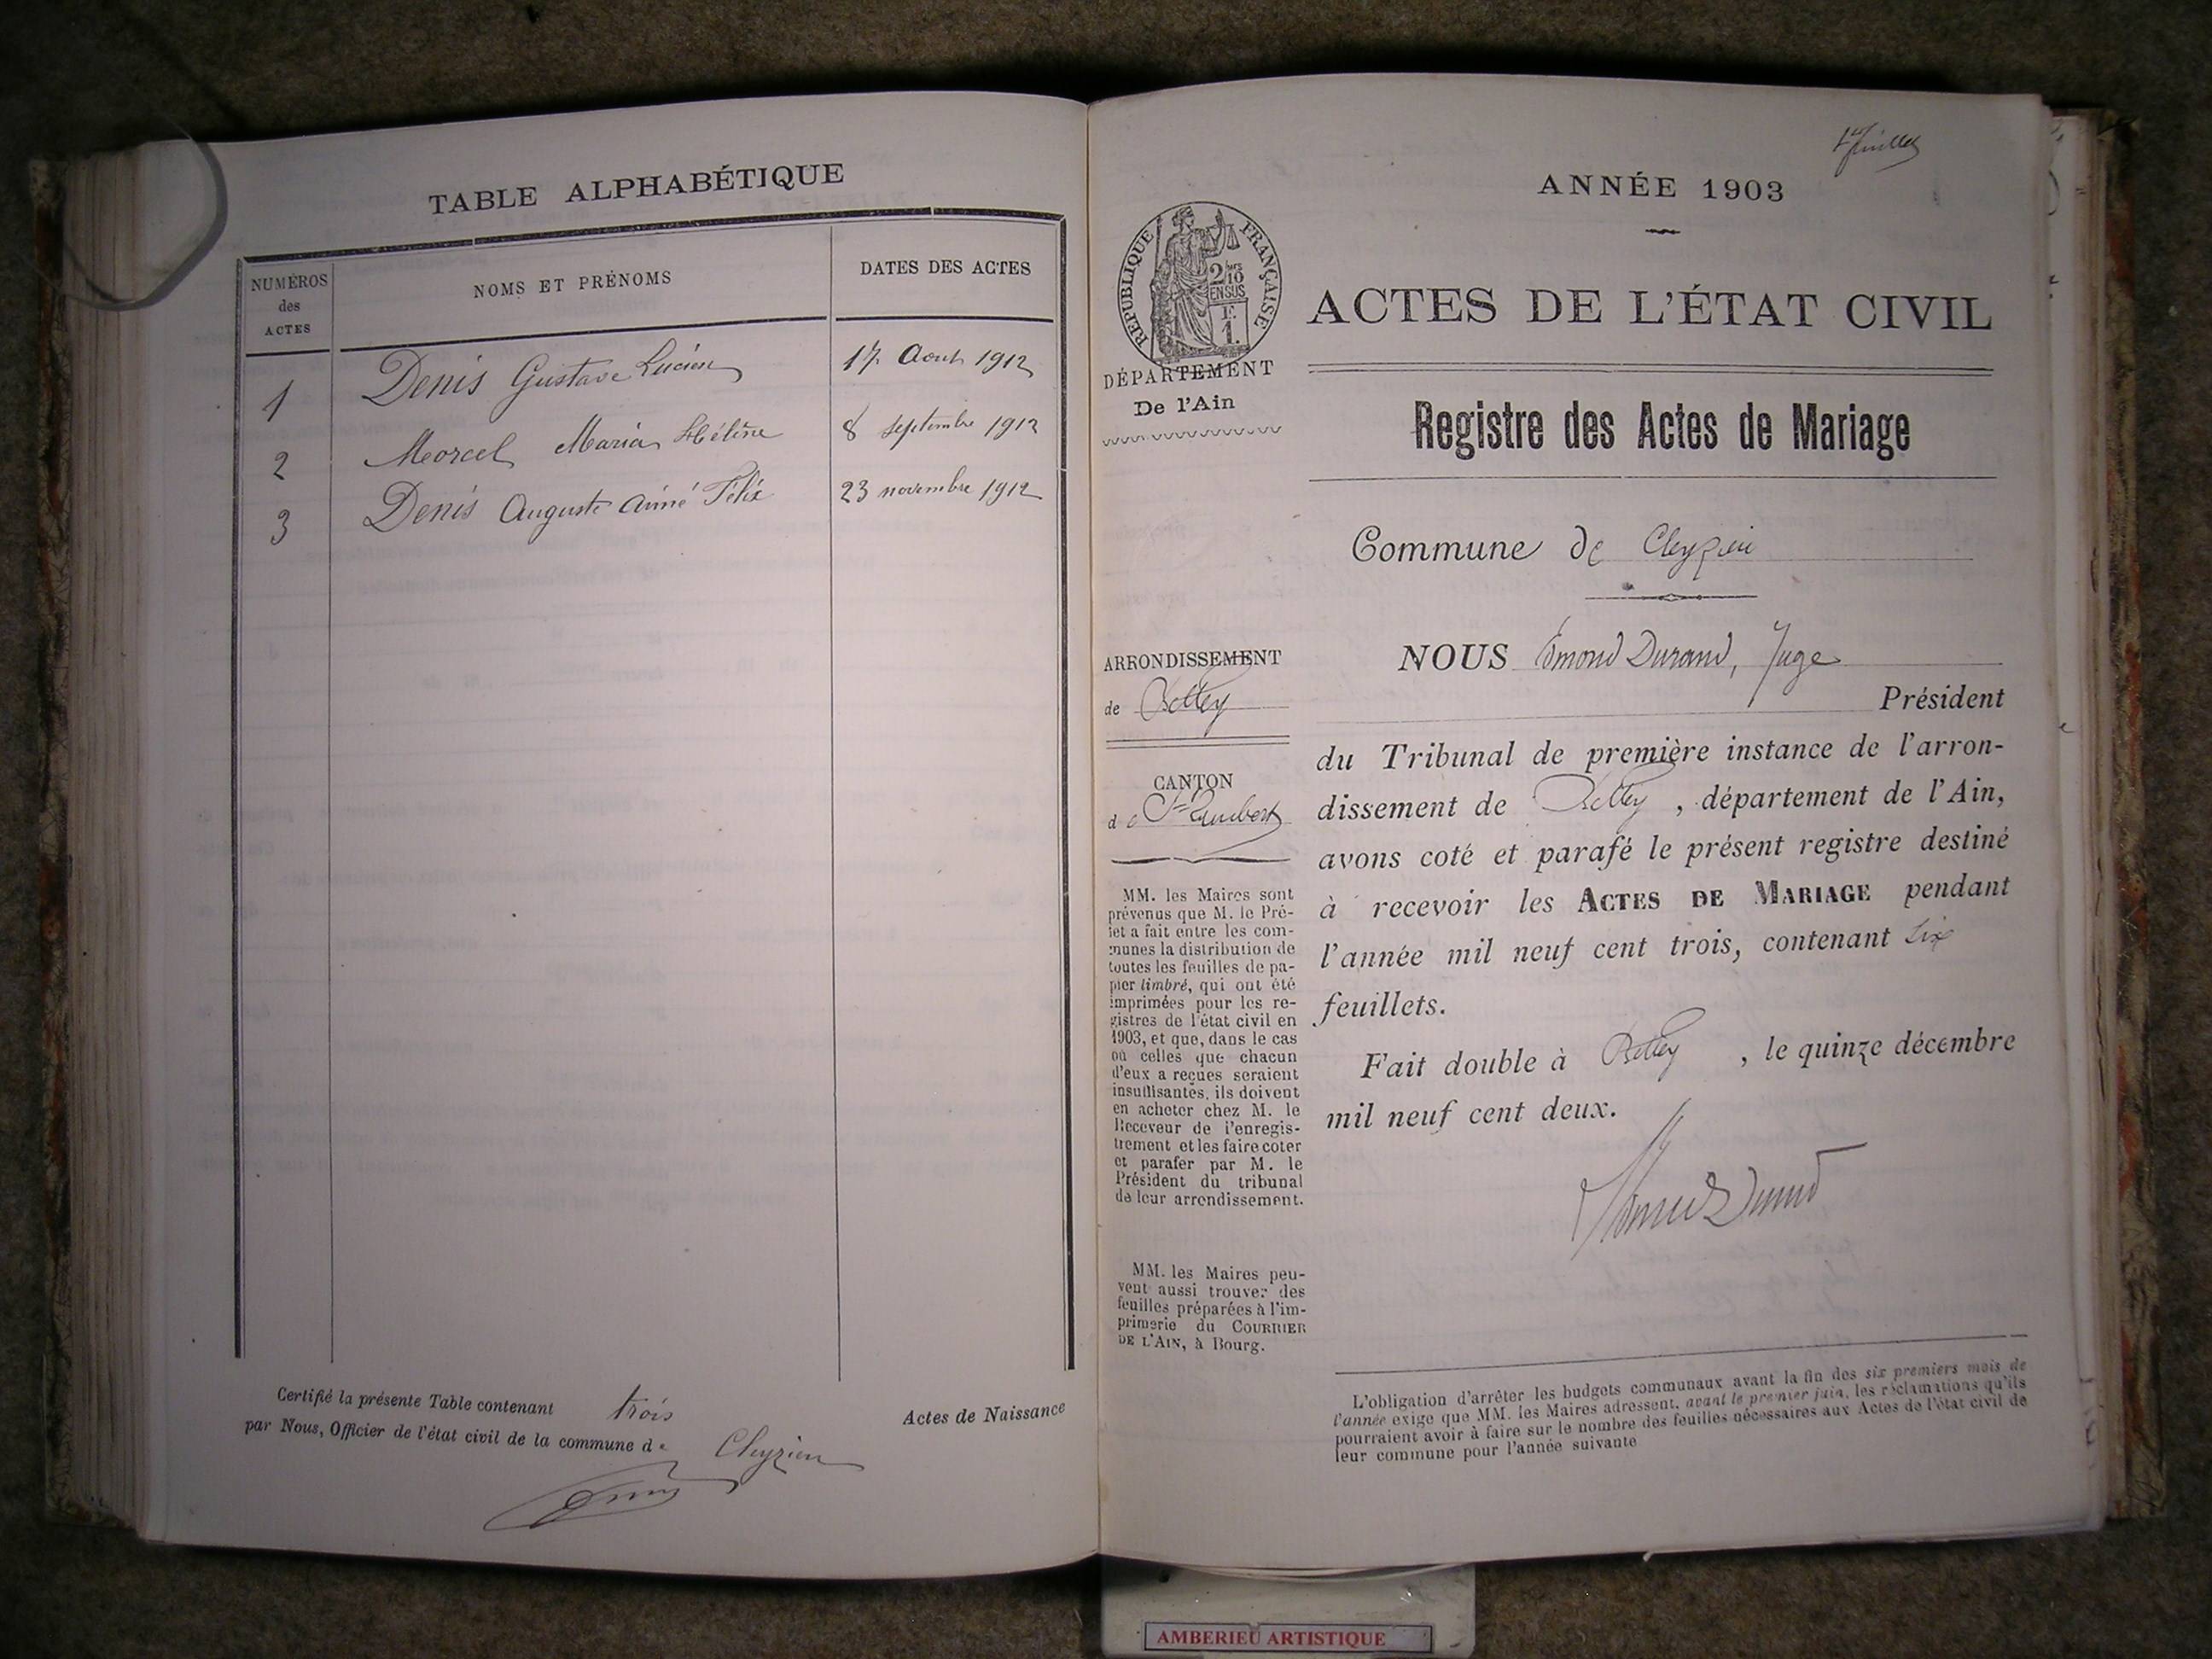 TABLE ALPHABÉTIQUE
NUMÉROS
des
ACTES
NOMS ET PRÉNOMS
DATES DES ACTES
1 Denis Gustave Lucien 17 Aout 1912
2 Morcel Maria Hélène 8 septembre 1912
3 Denis Auguste Aimé Félix 23 novembre 1912
Certifié la présente Table contenant trois Actes de Naissance
par Nous, Officier de l'état civil de la commune de Cleyzieu
1er feuillet
ANNÉE 1903
RÉPUBLIQUE FRANÇAISE
2/10
EN SUS
1 F.
DÉPARTEMENT
De l'Ain
ACTES DE L'ÉTAT CIVIL
Registre des Actes de Mariage
Commune de Cleyzieu
ARRONDISSEMENT
de Belley
CANTON
de St Rambert
MM. les Maires sont
prévenus que M. le Pré-
fet a fait entre les com-
munes la distribution de
toutes les feuilles de pa-
pier timbré, qui ont été
imprimées pour les re-
gistres de l'état civil en
1903, et que, dans le cas
où celles que chacun
d'eux a reçues seraient
insuffisantes, ils doivent
en acheter chez M. le
Receveur de l'enregis-
trement et les faire coter
et parafer par M. le
Président du tribunal
de leur arrondissement.
MM. les Maires peu-
vent aussi trouver des
feuilles préparées à l'im-
primerie du COURRIER
DE L'AIN, à Bourg.
NOUS Edmond Durand, Juge
Président
du Tribunal de première instance de l'arron-
dissement de Belley, département de l'Ain,
avons coté et parafé le présent registre destiné
à recevoir les ACTES DE MARIAGE pendant
l'année mil neuf cent trois, contenant six
feuillets.
Fait double à Belley, le quinze décembre
mil neuf cent deux.
L'obligation d'arrêter les budgets communaux avant la fin des six premiers mois de
l'année exige que MM. les Maires adressent, avant le premier juin, les réclamations qu'ils
pourraient avoir à faire sur le nombre des feuilles nécessaires aux Actes de l'état civil de
leur commune pour l'année suivante
AMBERIEU ARTISTIQUE